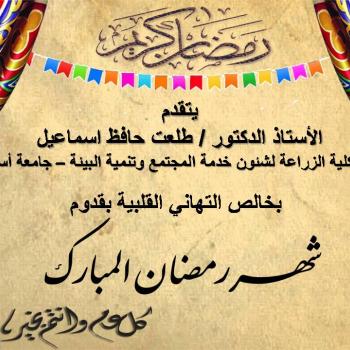 رمضان كريم
يتقدم
الأستاذ الدكتور / طلعت حافظ اسماعيل
كلية الزراعة لشئون خدمة المجتمع وتنمية البيئة – جامعة أس
بخالص التهاني القلبية بقدوم
شهر رمضان المبارك
كل عام وانتم بخير